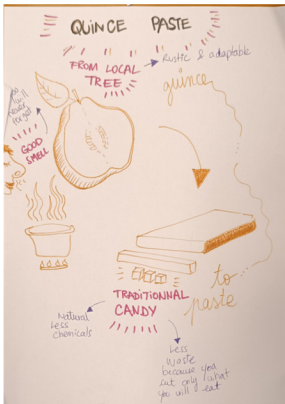 QUINCE PASTE
FROM LOCAL
TREE
Rustic & adaptable
quince
you
will
never
forget
GOOD
SMELL
to
paste
TRADITIONNAL
CANDY
Natural
Less
Chemicals
Less
Waste
because you
cut only what
you will eat